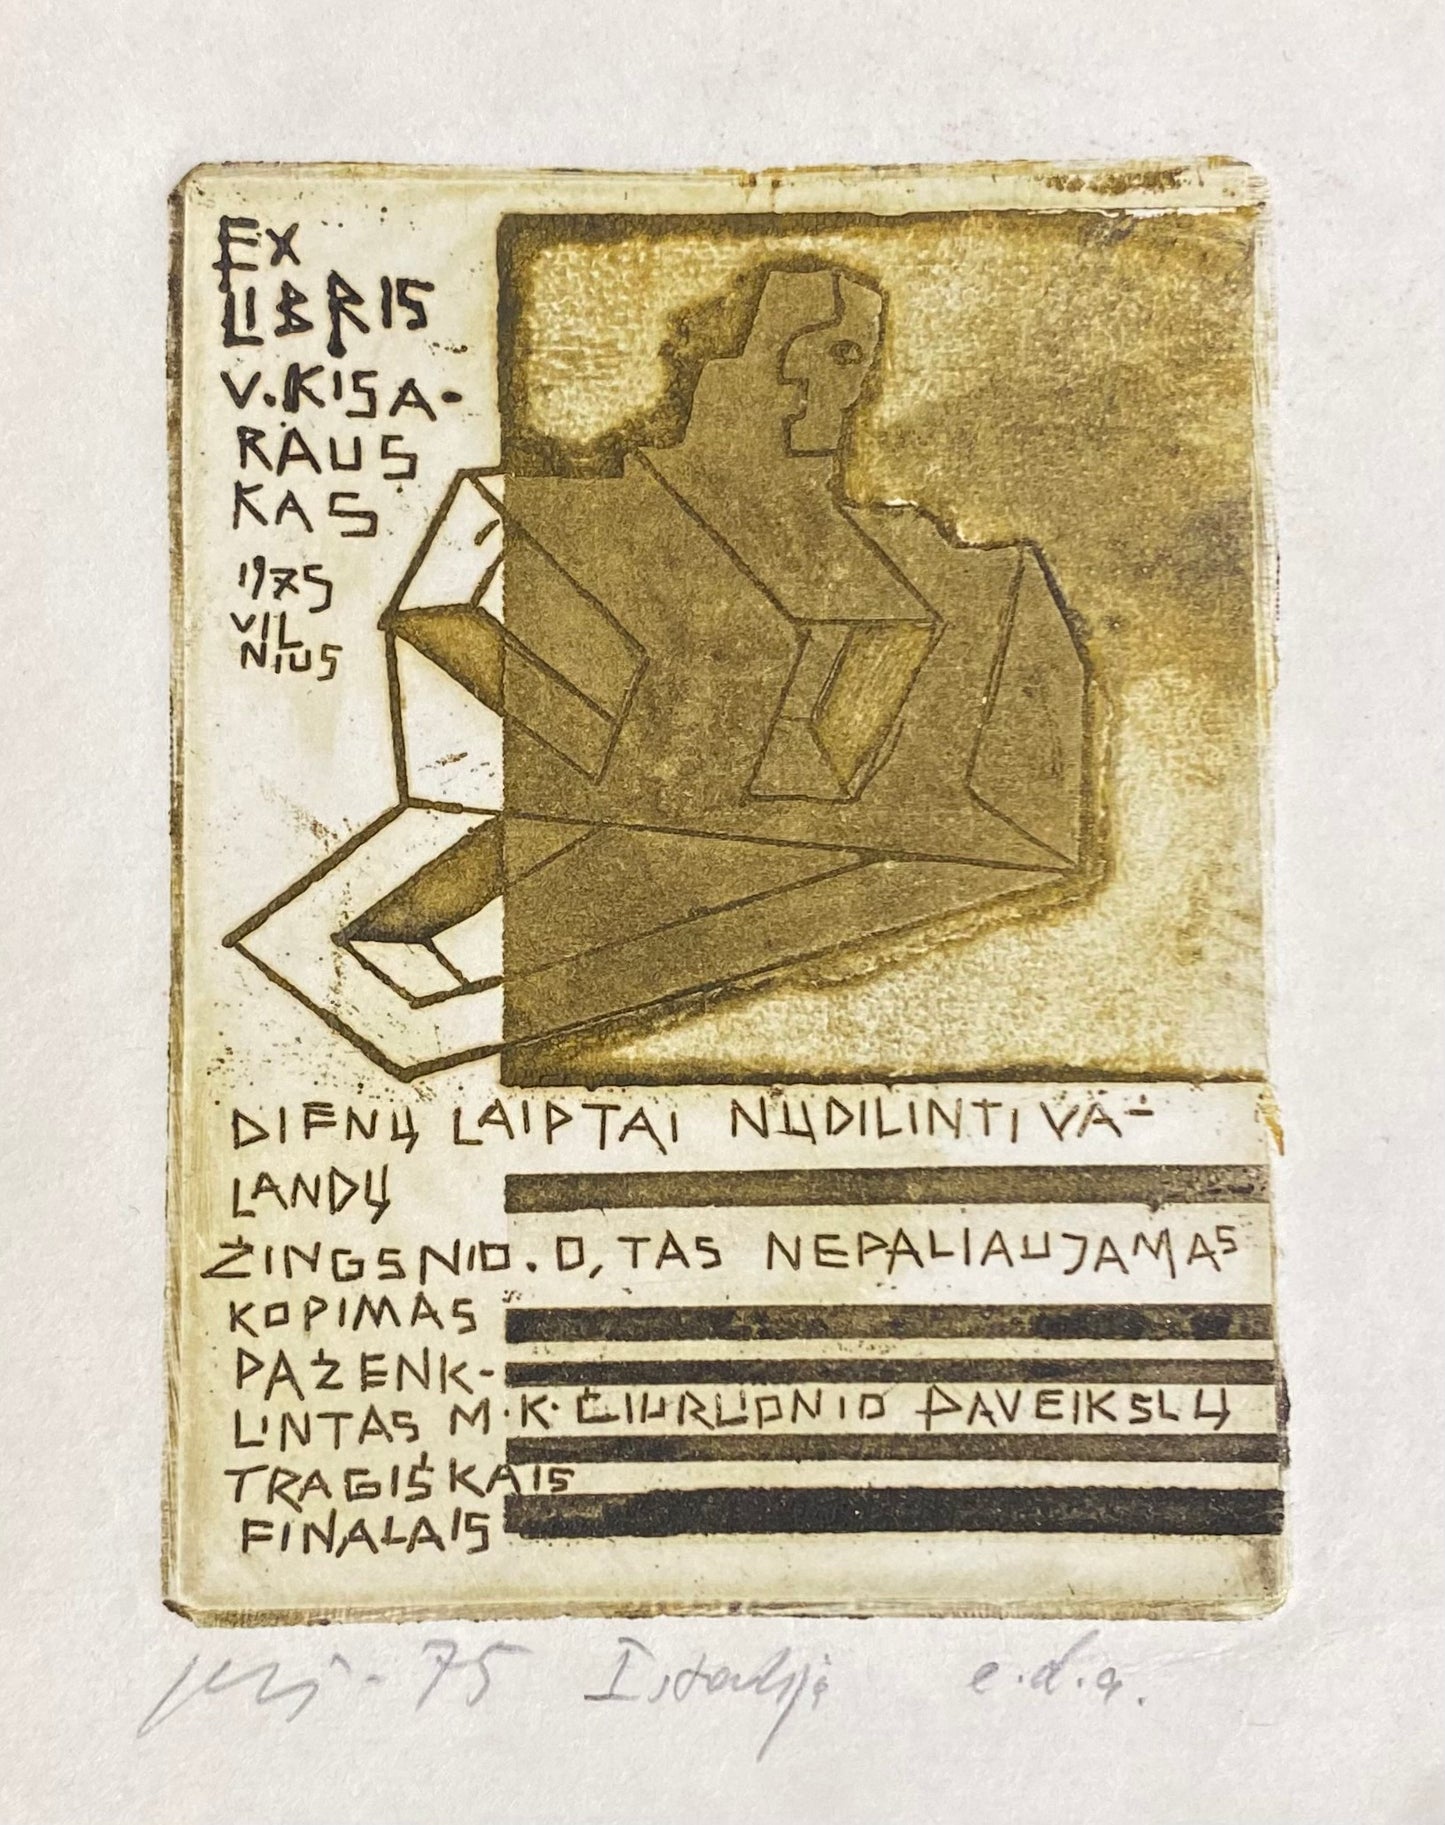 EX
LIBRIS
V. KISA-
RAUS
KAS
1975
VIL
NIUS
DIENŲ LAIPTAI NUDILINTI VA-
LANDŲ
ŽINGSNIO. O, TAS NEPALIAUJAMAS
KOPIMAS
PAŽENK-
LINTAS M.K. ČIURLIONIO PAVEIKSLŲ
TRAGIŠKAIS
FINALAIS
- 75 I stadija e.d.a.